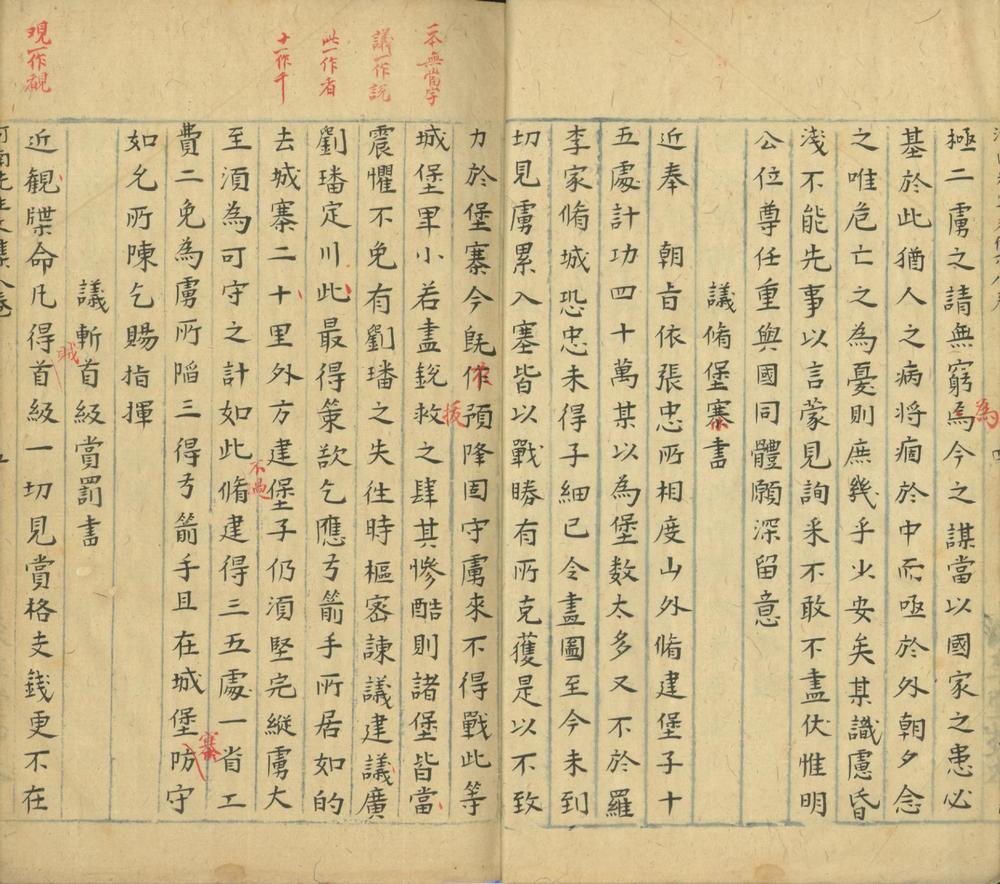 極二虜之請無窮焉今之謀當以國家之患必
為
基於此猶人之病将痼於中而亟於外朝夕念
之唯危亡之為憂則庶幾乎少安矣某識慮昏
淺不能先事以言蒙見詢釆不敢不盡伏惟明
公位尊任重與國同體願深留意
議脩堡寨書
近奉 朝㫖依張忠所相度山外脩建堡子十
五處計功四十萬某以為堡数太多又不於羅
李家脩城恐忠未得子細已令盡圖至今未到
切見虜累入塞皆以戰勝有所克獲是以不致
力於堡寨今旣作預降固守虜來不得戰此等
一本無當字
城堡早小若盡銳救之肆其慘酷則諸堡皆當
拔
議一作説
震懼不免有劉璠之失徃時樞宻諫議建議廣
此一作者
劉璠定川此最得策欲乞應弓箭手所居如的
十一作千
去城寨二十里外方建堡子仍湏堅完縱虜大
不過
至湏為可守之計如此脩建得三五處一省工
費二免為虜所陷三得弓箭手且在城堡防守
寨
如允所陳乞賜指揮
議斬首級賞罰書
覌一作覩
近観牒命凡得首級一切見賞格支錢更不在
賊